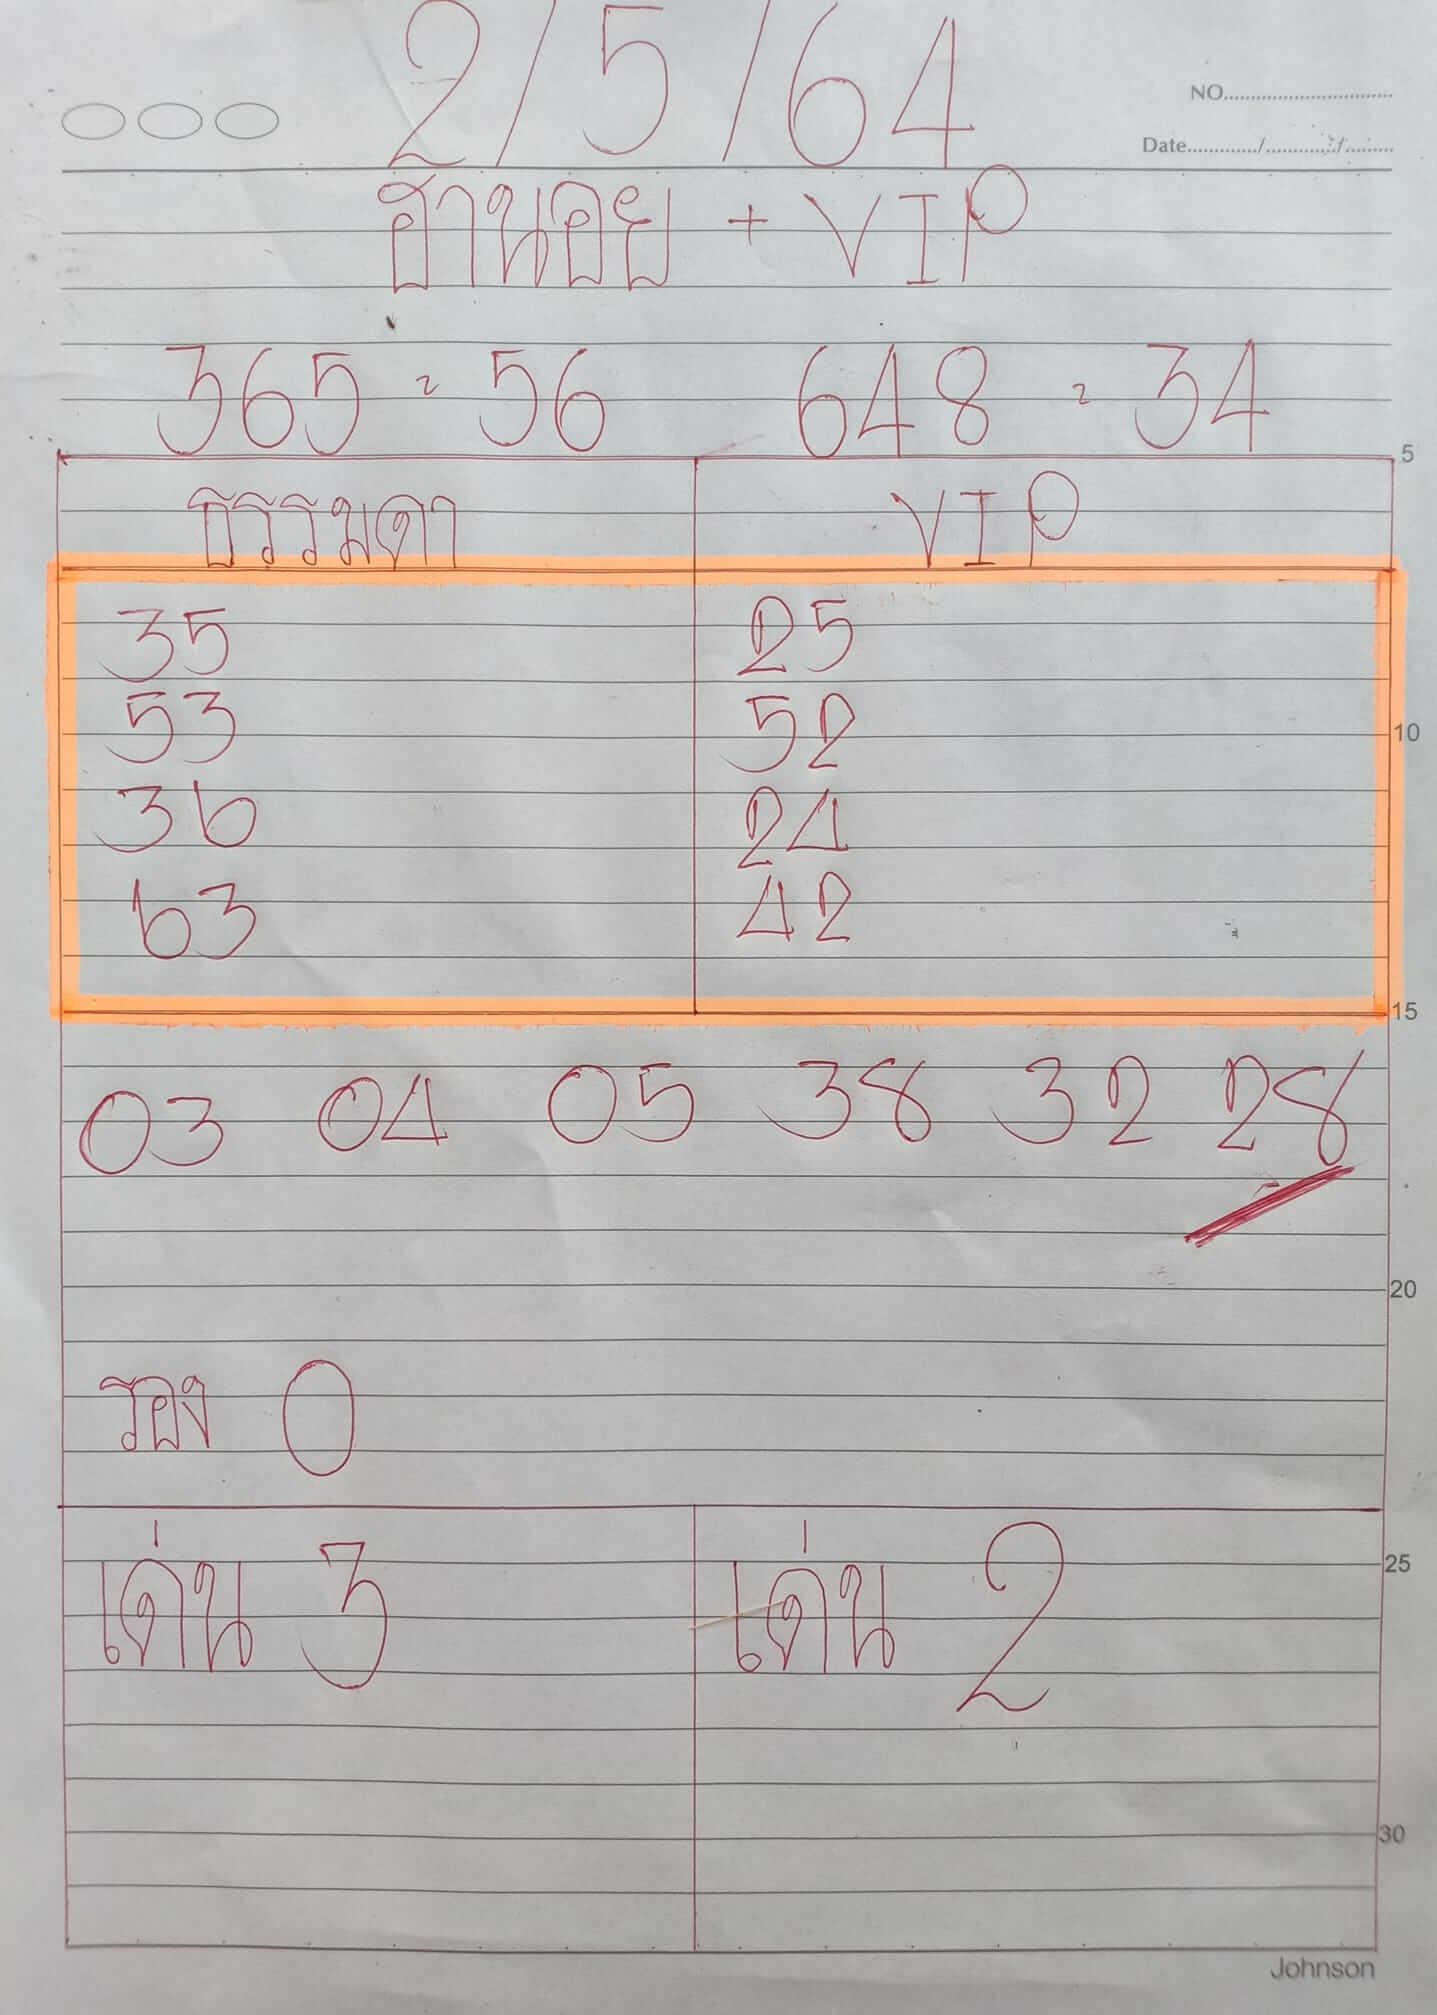 2/5/64
NO.
Date............/............/..........
ฮานอย + VIP
365 = 56 648 = 34
5
ธรรมดา VIP
35 25
53 52
10
36 24
63 42
15
03 04 05 38 32 28
20
รอง 0
เด่น 3 เด่น 2
25
30
Johnson